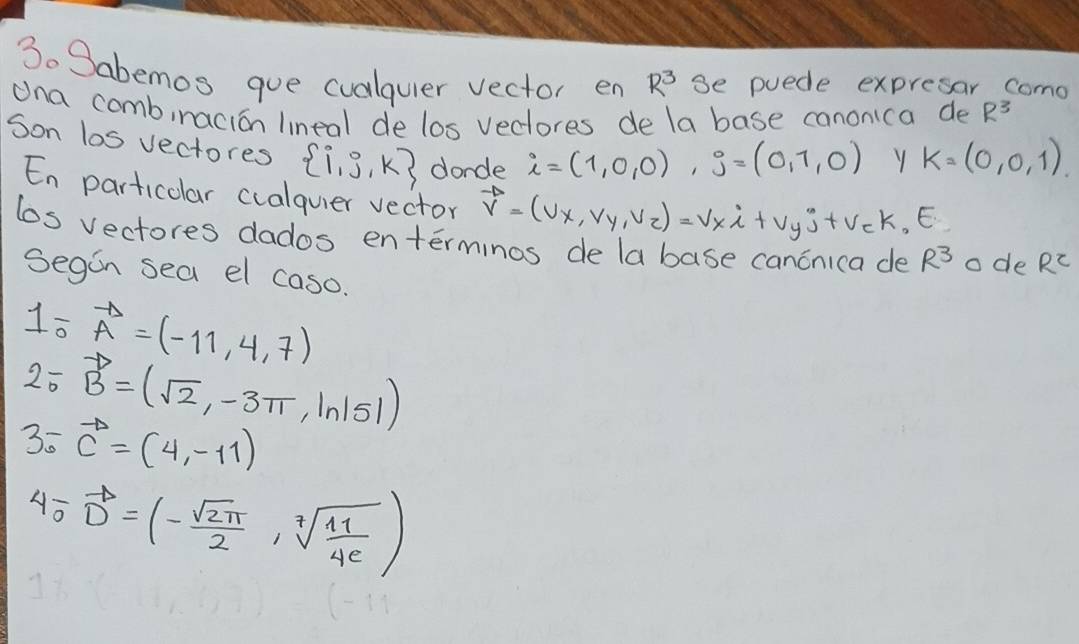 3. Sabemos que cualquier vector en R³ se puede expresar como
una combinación lineal de los vectores de la base canonica de R³
Son los vectores {i, j, k} donde i = (1,0,0), j = (0,1,0) y k = (0,0,1).
En particular cualquier vector v⃗ = (Vx, Vy, Vz) = Vx i + Vy j + Vz k. E
los vectores dados en términos de la base canónica de R³ o de R²
Según sea el caso.
1.- A⃗ = (-11, 4, 7)
2.- B⃗ = (√2, -3π, ln|5|)
3.- C⃗ = (4, -11)
4.- D⃗ = (-√2π/2, ⁷√(11/4e))